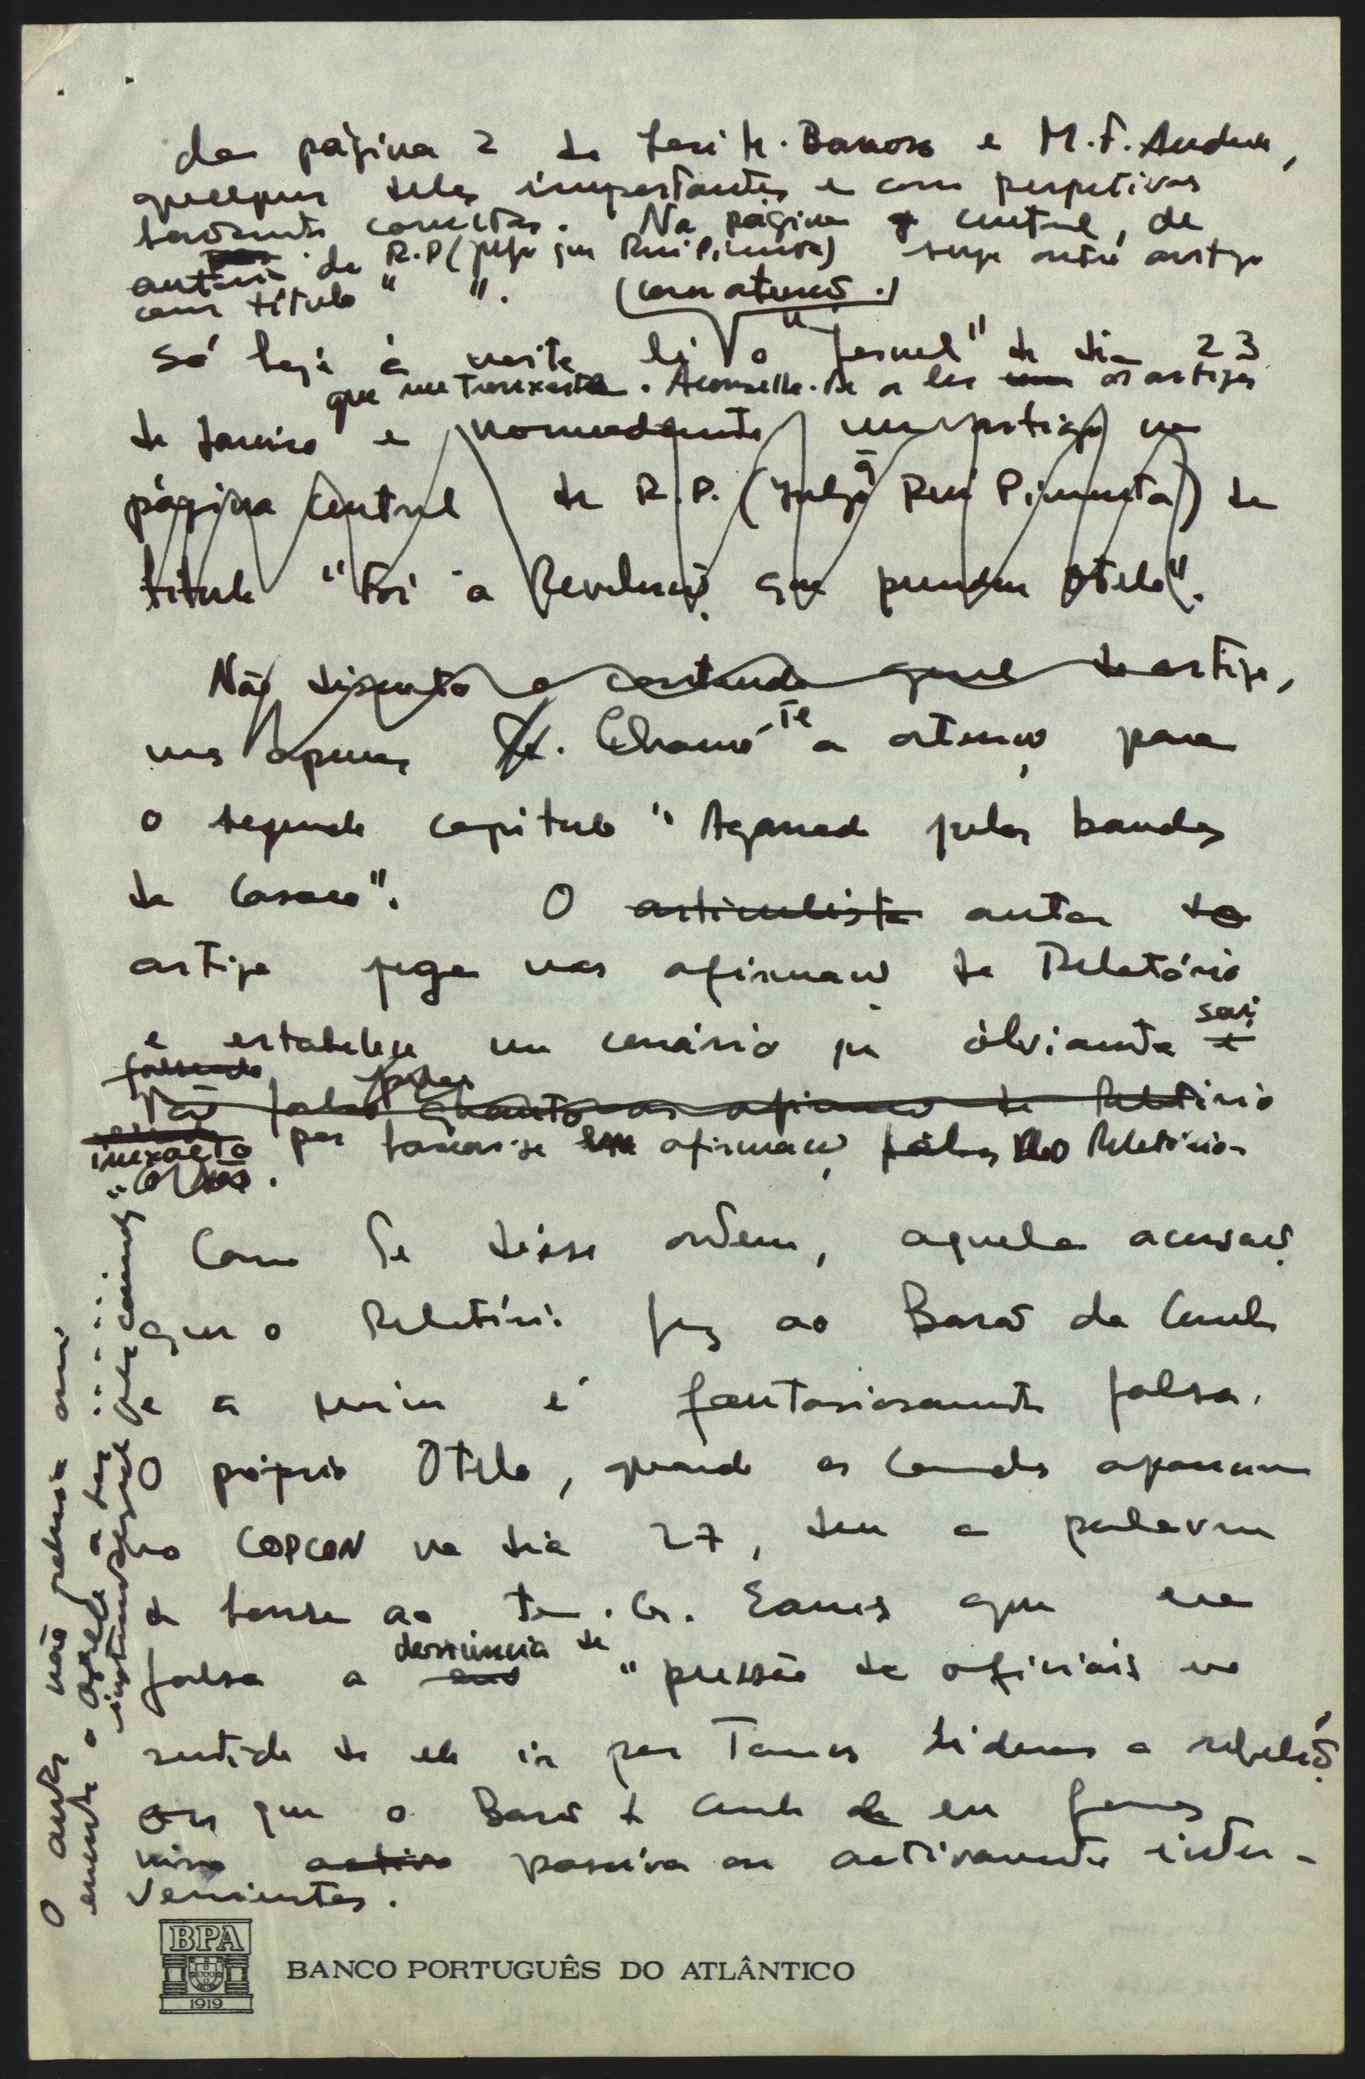 da página 2 de José M. Barroso e M.F.
importantes e com perspetivas
bastante correctas. Na página central, de
autoria de R.P (julgo que Rui Pimenta) surge outro artigo
com título " ".
(com atenção.)
Só hoje à noite li o "Jornal" de dia 23
que me trouxeste. Aconselho-te a ler os artigos
de Janeiro e nomeadamente um artigo na
página central de R.P. (julgo q Rui Pimenta) de
título "Foi a Revolução que prendeu Otelo".
Não discuto o conteúdo geral do artigo,
mas apenas Chamo-te a atenção para
o segundo capítulo "Agarrado pelas bandas
do Casaco". O articulista autor do
artigo pega nas afirmações do Relatório
e estabelece um cenário que obviamente será
falseado
Tão falso quanto as afirmações do Relatório
inexacto por basear-se em afirmações falsas do Relatório
Como te disse ontem, aquela acusação
que o Relatório fez ao Barão da Cunha
e a mim é fantasiosamente falsa.
O próprio Otelo, quando os Comandos apareceram
no COPCON no dia 27, deu a palavra
de honra ao Ten. Cor. Eanes que era
falsa a denúncia de "pressão de oficiais no
sentido de ele ir por Tancos liderar a rebelião
ou que o Barão da Cunha e eu fomos
nisso activa passiva ou activamente inter-
venientes.
O autor não poderia
BPA
1919
BANCO PORTUGUÊS DO ATLÂNTICO